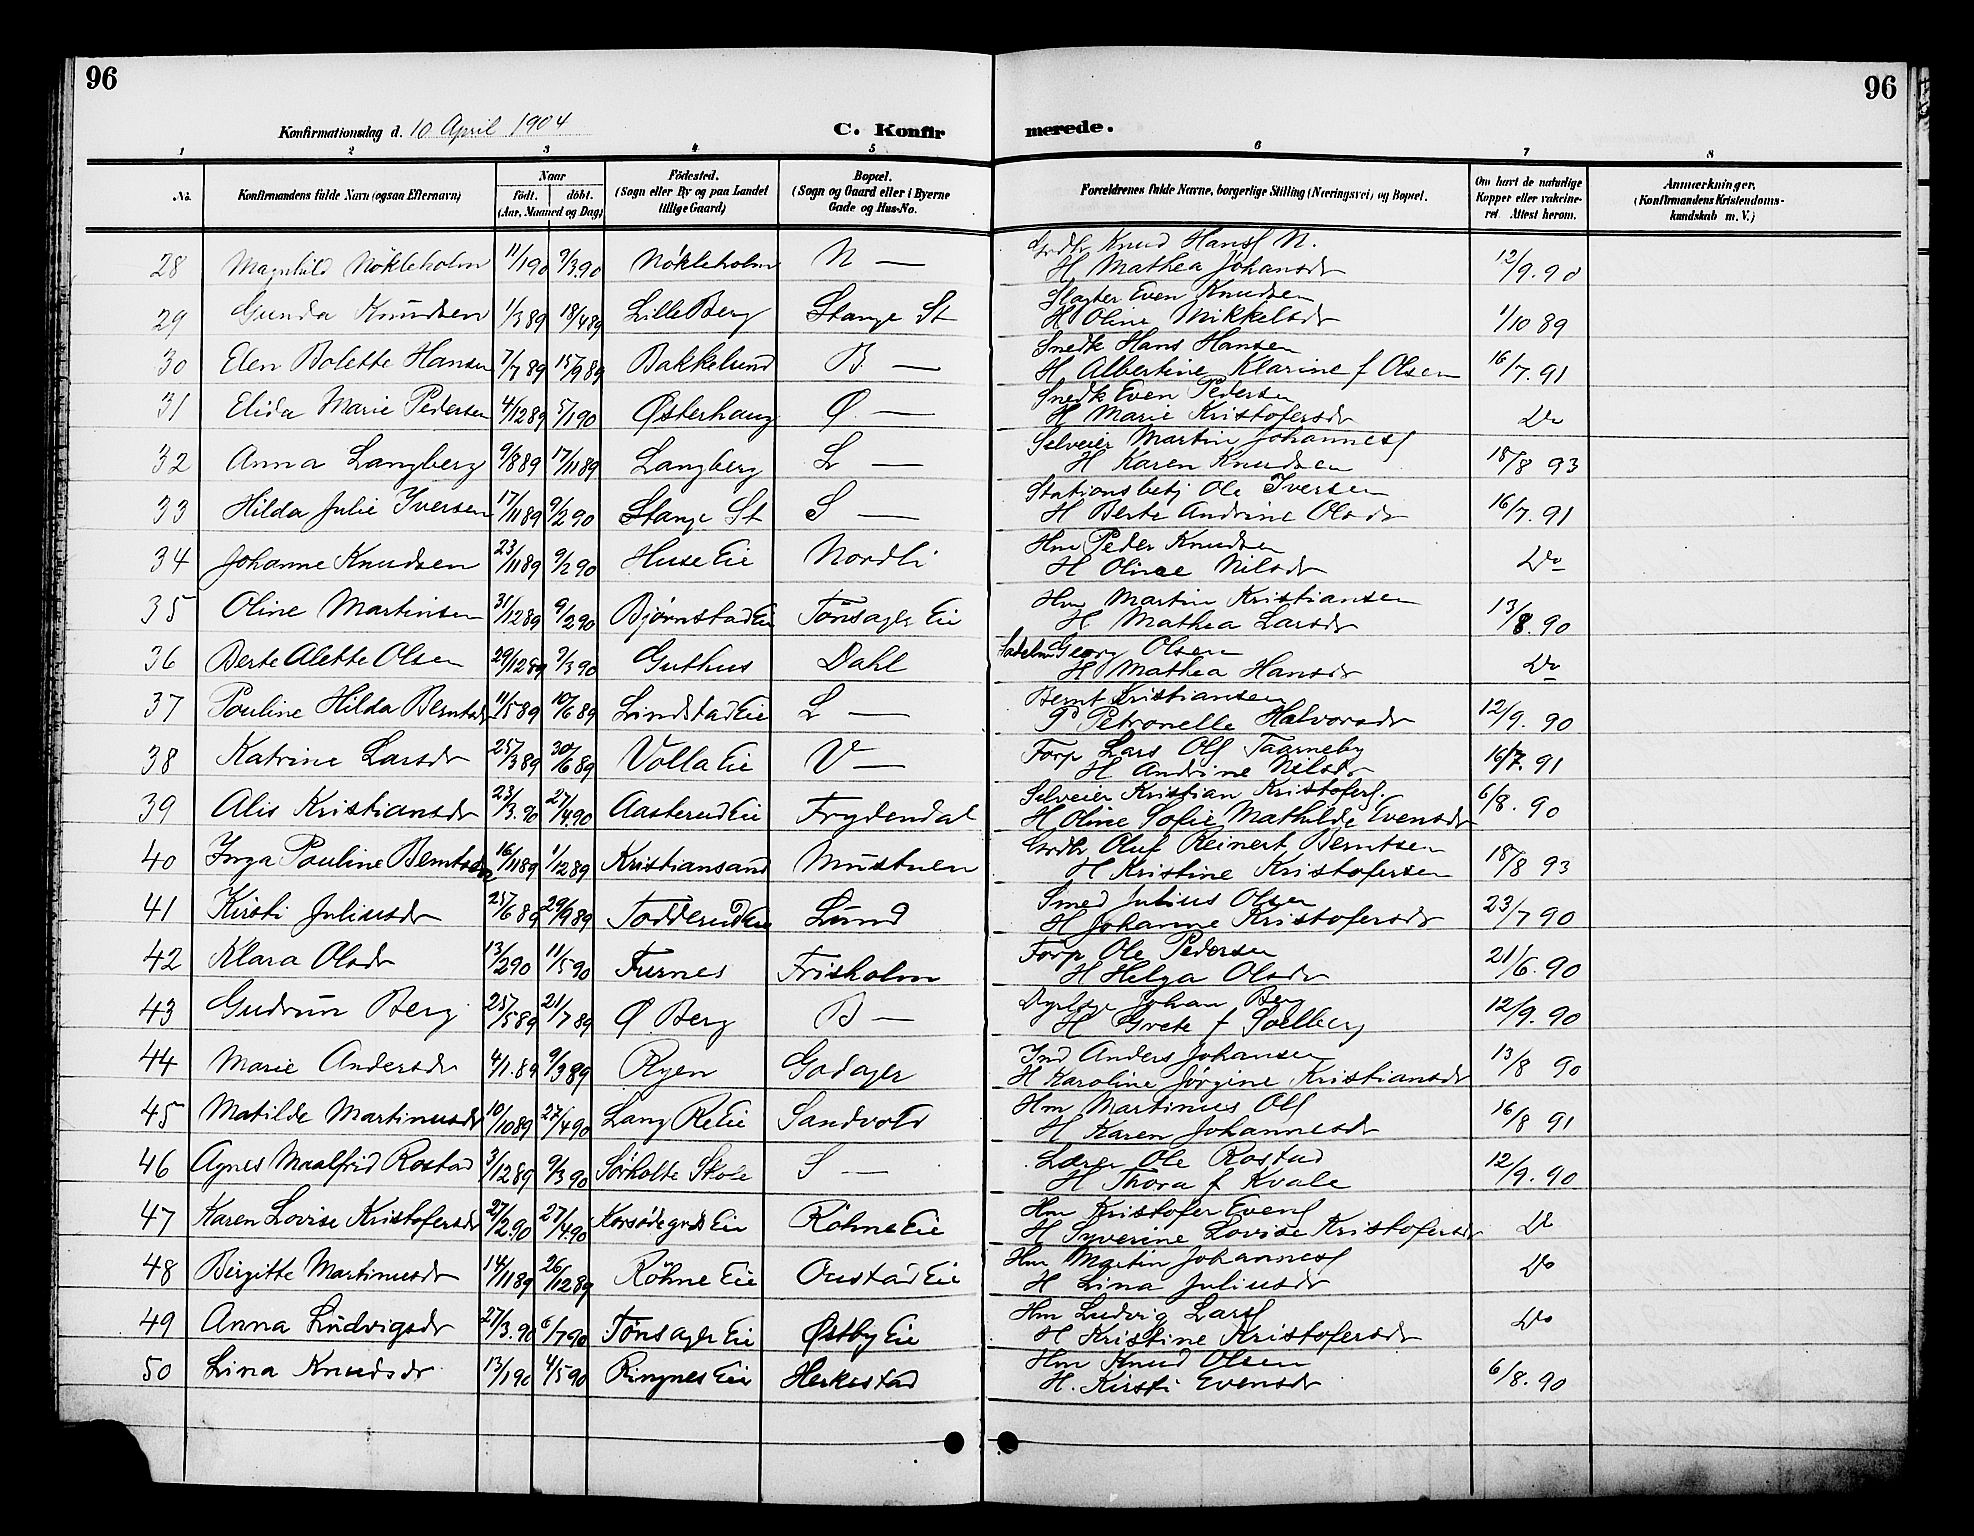 96
96
Konfirmationsdag d. 10 April 1904
C. Konfir
merede.
1 2 3 4 5 6 7 8
No.
Konfirmandens fulde Navn (ogsaa Efternavn)
Naar
födt. döbt.
(Aar, Maaned og Dag)
Födested.
(Sogn eller By og paa Landet
tillige Gaard)
Bopæl.
(Sogn og Gaard eller i Byerne
Gade og Hus-No.
Forældrenes fulde Navne, borgerlige Stilling (Næringsvei) og Bopæl.
Om havt de naturlige
Kopper eller vakcine-
ret. Attest herom.
Anmærkninger,
(Konfirmandens Kristendoms-
kundskab m. V.)
28 Magnhild Nökleholm 11/1 90 9/3.90 Nökleholm N — Grdbr Knud Hansf N. 12/9.90
H Mathea Johansdr
29 Gunda Knudsen 1/3 89 18/4 89 Lille Berg Stange St Slagter Even Knudsen 1/10 89
H Oline Mikkelsdr
30 Elen Bolette Hansen 7/7 89 15/9 89 Bakkelund B. — Snedk Hans Hansen 16/7.91
H Albertine Klarine f Olsen
31 Elida Marie Pedersen 4/12 89 5/1 90 Østerhaug Ø. — Snedk Even Pedersen Do
H Marie Kristofersdr
32 Anna Langberg 9/8 89 17/11 89 Langberg L — Selveier Martin Johannesf 18/8 93
H Karen Knudsen
33 Hilda Julie Iversen 17/11 89 9/2 90 Stange St S — Stationsbetj Ole Iversen 16/7.91
H Berte Andrine Olsdr
34 Johanne Knudsen 23/11 89 9/2 90 Huse Eie Nordli Hm Peder Knudsen Do
H Oline Nilsdr
35 Oline Martinsen 31/12 89 9/2 90 Bjørnstad Eie Tönsager Eie Hm Martin Kristiansen 13/8.90
H Mathea Larsdr
36 Berte Alette Olsen 29/12 89 9/3 90 Guthus Dahl Sadelm Georg Olsen Do
H Mathea Hansdr
37 Pauline Hilda Berntsdr 11/5 89 10/6 89 Lindstad Eie L — Bernt Kristiansen 12/9.90
P Petronelle Halvorsdr
38 Katrine Larsdr 25/3 89 30/6 89 Volla Eie V — Forp Lars Olf Taarneby 16/7.91
H Andrine Nilsdr
39 Alis Kristiansdr 23/3.90 27/4.90 Aasterud Eie Frydendal Selveier Kristian Kristofers. 6/8.90
H Oline Sofie Mathilde Evensdr
40 Inga Pauline Berntsen 16/11 89 1/12 89 Kristiansand Mustuen Grdbr Oluf Reinert Berntsen 18/8 93
H Kristine Kristofersen
41 Kirsti Juliusdr 25/6 89 29/9 89 Todderud Eie Lund Smed Julius Olsen 23/7 90
H Johanne Kristofersdr
42 Klara Olsdr 13/2 90 11/5 90 Furnes Frisholm Forp Ole Pedersen 21/6.90
H Helga Olsdr
43 Gudrun Berg 25/5 89 21/7 89 Ø Berg B — Dyrlæge Johan Berg 12/9.90
H Grete f Solberg
44 Marie Andersdr 4/1.89 9/3 89 Ryen Godager Ind Anders Johansen 13/8 90
H Karoline Jörgine Kristiansdr
45 Matilde Martinusdr 10/10 89 27/4 90 Lang Re Eie Sandvold Hm Martinus Olf 16/8 91
H Karen Johannesdr
46 Agnes Maalfrid Rostad 3/12 89 9/3 90 Sörholte Skole S — Lærer Ole Rostad 12/9.90
H Thora f Kvale
47 Karen Lovise Kristofersdr 27/2.90 27/4.90 Korsödegrds Eie Röhne Eie Hm Kristofer Evenf Do
H Syverine Lovise Kristofersdr
48 Birgitte Martinusdr 14/11 89 26/12 89 Röhne Eie Oustad Eie Hm Martin Johannesf Do
H Lina Juliusdr
49 Anna Ludvigsdr 27/3.90 6/7 90 Tönsager Eie Østby Eie Hm Ludvig Larsf Do
H Kristine Kristofersdr
50 Lina Knudsdr 13/1 90 4/5 90 Ringnes Eie Herkestad Hm Knud Olsen 6/8.90
H. Kirsti Evensdr